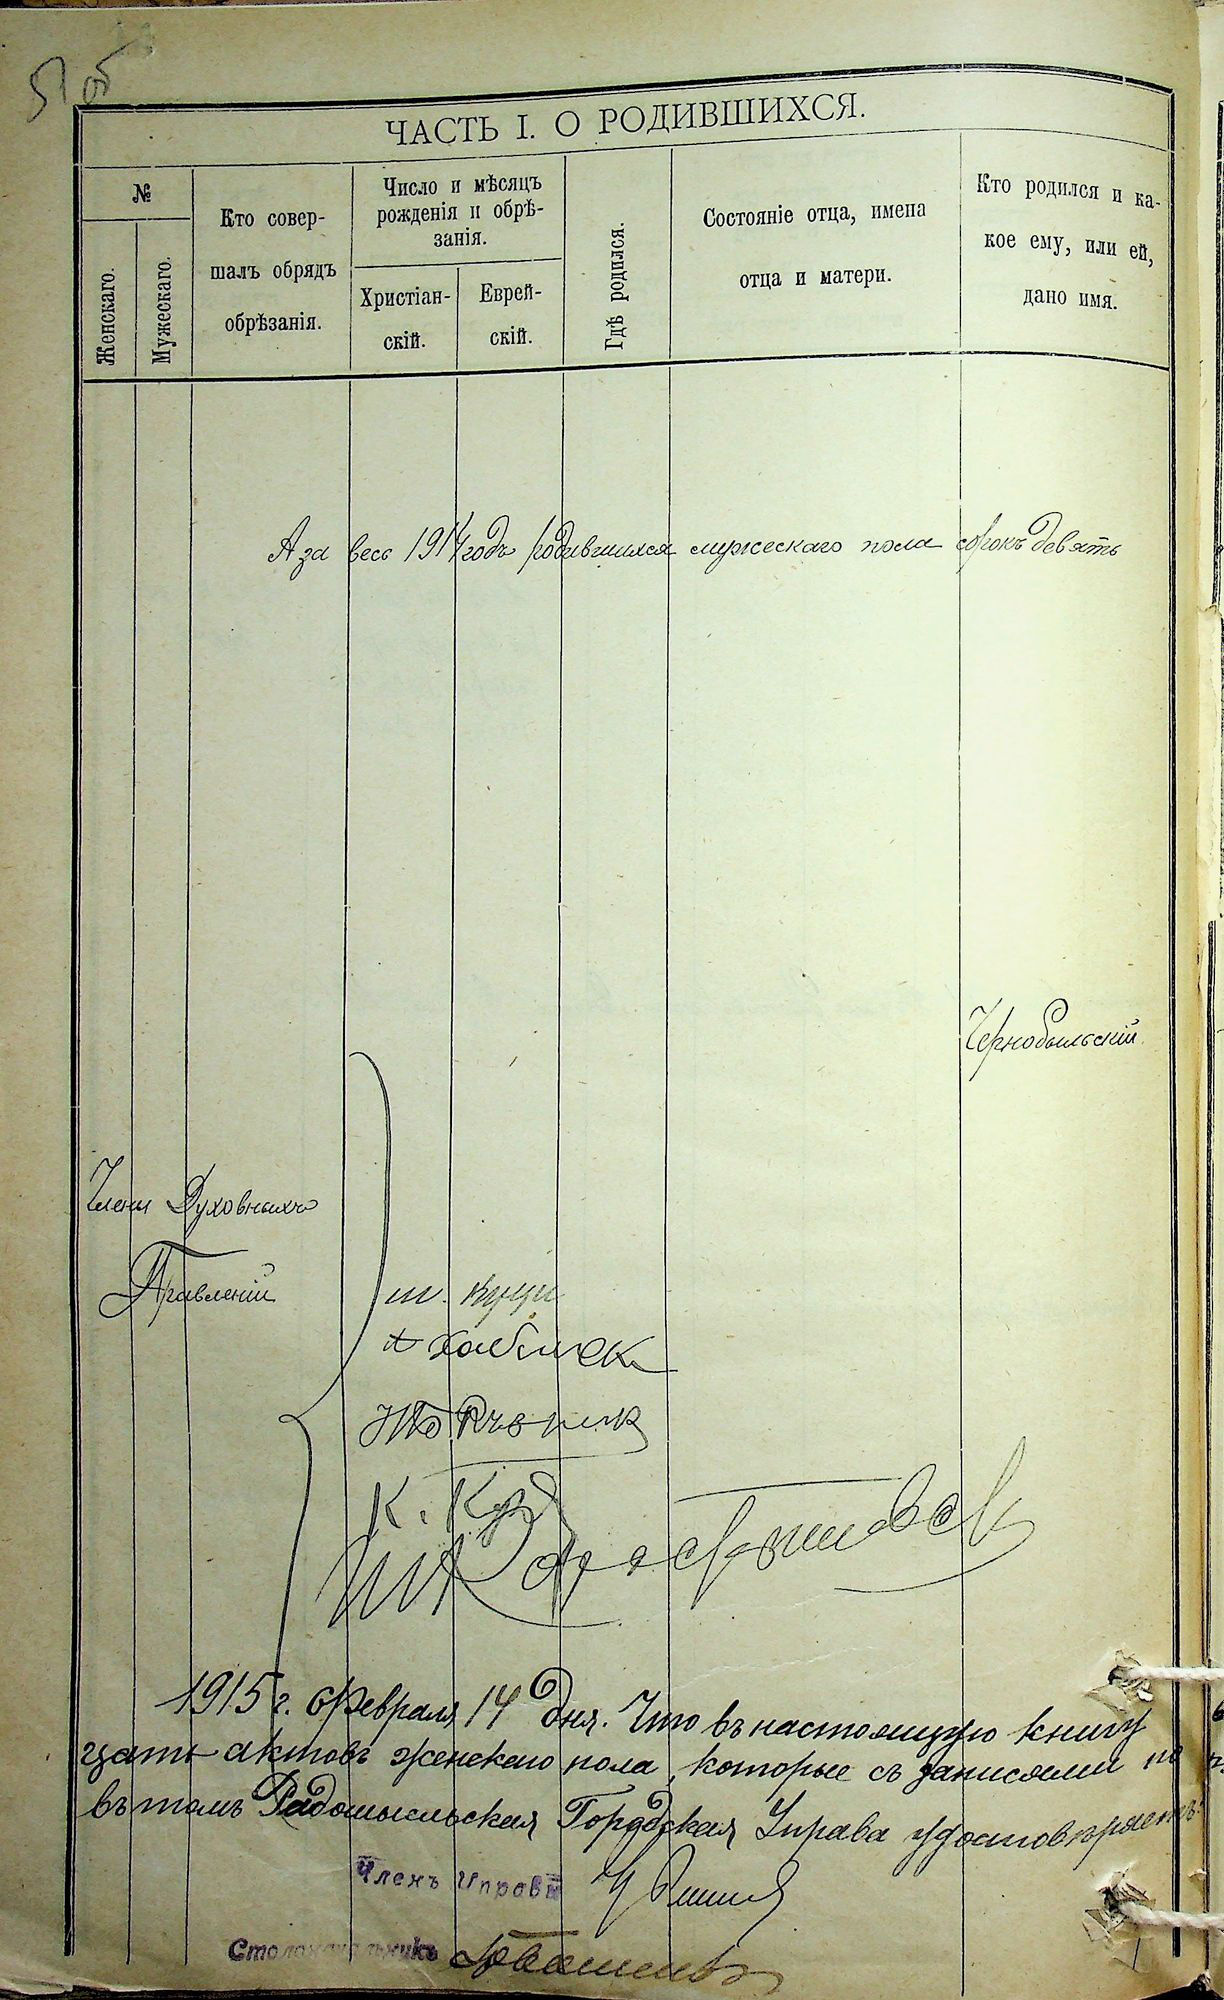 51 об
ЧАСТЬ I. О РОДИВШИХСЯ.
№
Женскаго.
Мужескаго.
Кто совер-
шалъ обрядъ
обрѣзанія.
Число и мѣсяцъ
рожденія и обрѣ-
занія.
Христіан-
скій.
Еврей-
скій.
Гдѣ родился.
Состояніе отца, имена
отца и матери.
Кто родился и ка-
кое ему, или ей,
дано имя.
А за весь 1914 годъ родившихся мужескаго пола сорокъ девять
Чернобыльскій
Члены Духовныхъ
Правленій
К. Куз
1915 г. Февраля 14 дня. Что въ настоящую книгу
цать актовъ женскаго пола, которые съ записями
въ томъ Радомысльская Городская Управа удостовѣряетъ
Членъ Управы
Столоначальникъ